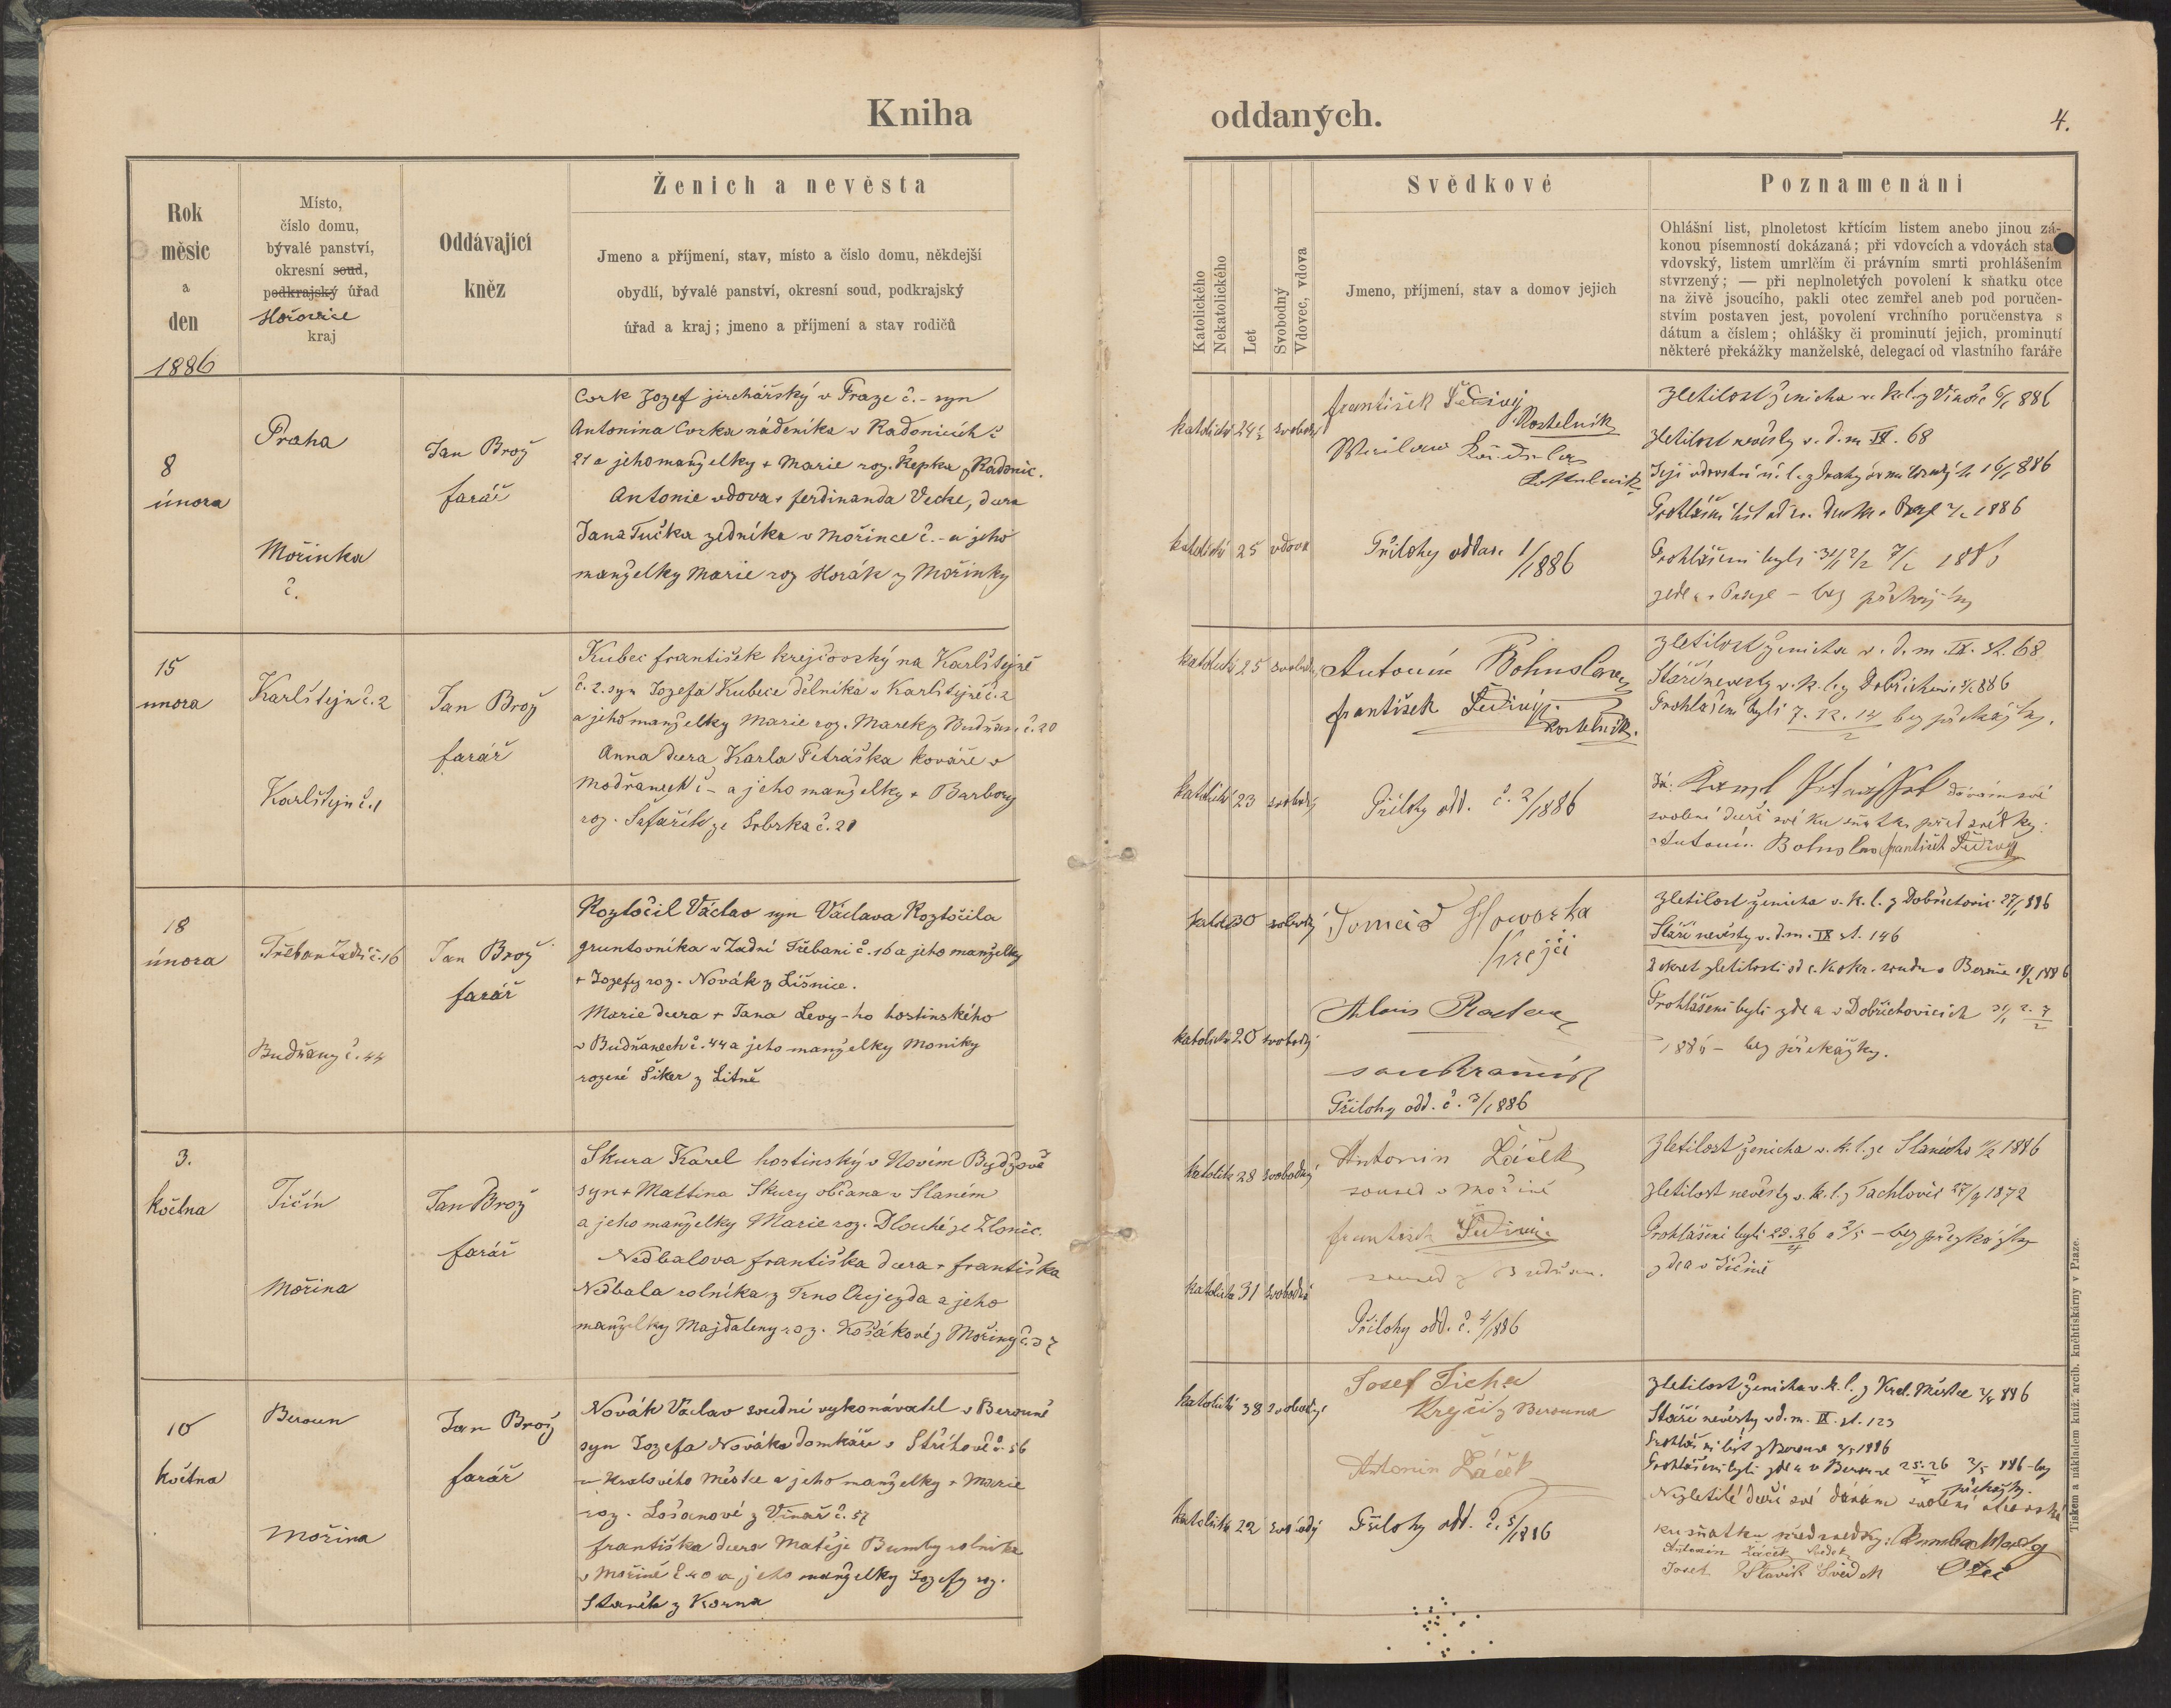 Kniha
oddaných.
4.
Rok
měsíc
a
den
1886
Místo,
číslo domu,
bývalé panství,
okresní soud,
podkrajský úřad
Hořovice
kraj
Oddávající
kněz
Ženich a nevěsta
Jmeno a příjmení, stav, místo a číslo domu, někdejší
obydlí, bývalé panství, okresní soud, podkrajský
úřad a kraj; jmeno a příjmení a stav rodičů
Katolického
Nekatolického
Let
Svobodný
Vdovec, vdova
Svědkové
Jmeno, příjmení, stav a domov jejich
Poznamenání
Ohlášní list, plnoletost křtícím listem anebo jinou zá-
konou písemností dokázaná; při vdovcích a vdovách stav
vdovský, listem umrlčím či právním smrti prohlášením
stvrzený; — při neplnoletých povolení k sňatku otce
na živě jsoucího, pakli otec zemřel aneb pod poručen-
stvím postaven jest, povolení vrchního poručenstva s
dátum a číslem; ohlášky či prominutí jejich, prominutí
některé překážky manželské, delegací od vlastního faráře
8
února
Praha
Mořinka
č.
Jan Brož
farář
Cork Jozef jirchářský v Praze č. - syn
Antonina Corka nádeníka v Radonicích č
21 a jeho manželky + Marie roz. Řepka z Radonic.
Antonie vdova + ferdinanda Vecke, dcera
Jana Tučka zedníka v Mořince č. - a jeho
manželky Marie roz Horák z Mořinky
katolický 24½ svobodný
katolická 25 vdova
františek Šedivý
Kostelník
Přílohy oddav. 1/1886
Zletilost ženicha v. k. l. z Vinoře 6/1 886
Zletilost nevěsty v. d. m IX. 68
Prohlášeni byli 31/1 2/2 7/2 1886
zde a v Praze - bez překážky
15
unora
Karlštejn č. 2
Karlštejn č. 1
Jan Brož
farář
Kubec františek krejčovský na Karlštejně
č. 2. syn Jozefa Kubece dělníka v Karlštejně č. 2
a jeho manželky Marie roz. Marek z Budňan č. 20
Anna dcera Karla Petráška kováře v
Modřanech č - a jeho manželky + Barbory
roz. Šafařík ze Srbska č. 21
katolický 25 svobodný
katolická 23 svobodný
Antonín
františek Šedivý
kostelník.
Přílohy odd. č. 2/1886
Zletilost ženicha v. d. m. IX. st. 68
Stáří nevěsty v. k. l. z
Prohlášeni byli 7. 12. 14/2 bez překážky.
Já: dávám své
svolení dceři své ku sňatku před svědky:
Antonín františek Šedivý
18
února
Třebaň Zadní č. 16
Budňany č. 44
Jan Brož
farář
Roztočil Václav syn Václava Roztočila
gruntovníka v Zadní Třebani č. 16 a jeho manželky
+ Jozefy roz. Novák z Líšnice.
Marie dcera + Jana Levy-ho hostinského
v Budňanech č. 44 a jeho manželky Moniky
rozené Šiker z Litně
katol 30 svobodný
katolická 20 svobodný
Tomáš Howorka
krejčí
Alois
soukromník
Přílohy odd. č. 3/1886
Zletilost ženicha v. k. l. z Dobřichovic 27/1 886
Stáří nevěsty v. d. m. IX st. 146
Dekret zletilosti od c. k. okr. soudu v Berouně 18/2 1886
Prohlášeni byli zde a v Dobřichovicích 31/1 2. 7/2
1886 - bez překážky.
3.
května
Tičín
Mořina
Jan Brož
farář
Skura Karel hostinský v Novém Bydžově
syn + Martina Skury občana v Slaném
a jeho manželky Marie roz. Dlouhé ze Zlonic.
Nedbalova františka dcera + františka
Nedbala rolníka z Trno Oujezda a jeho
manželky Majdaleny roz. Košákové z Mořiny č. 37
katolík 28 svobodný
katolička 31 svobodná
Antonin Žáček
soused v Mořině
františek Šedivý
soused z Budňan.
Přílohy odd. č. 4/1886
Zletilost ženicha v. k. l. ze
Zletilost nevěsty v. k. l. z Tachlovic 27/9 1872
Prohlášeni byli 25. 26/4 a 2/5 - bez překážky
zde a v Tičíně
10
května
Beroun
Mořina
Jan Brož
farář
Novák Václav soudní vykonávatel v Berouně
syn Jozefa Nováka domkáře v Střihově č. 56
u Kralového Městce a jeho manželky + Marie
roz. Lošanové z Vinař č. 57
františka dcera Matěje Bumby rolníka
v Mořině č 40 a jeho manželky Jozefy roz.
Staněk z Korna
katolický 38 svobodný
katolička 22 svobodný
Josef Ticha
Krejčí z Berouna
Antonin Žáček
Přílohy odd. č. 5/1886
Zletilost ženicha v. k. l. z Kral. Městce 886
Stáří nevěsty v d. m. IX. st. 123
Prohlášní list z Berouna 1886
Prohlášeni byli zde a v Berouně 25. 26 2/5 886 - bez
překážky.
Nezletilé dceři své dávám svolení otcovské
ku sňatku před svědky:
Antonin Žáček Svědek
Josef Slavík Svědek
Otec
Tiskem a nákladem kníž. arcib. knihtiskárny v Praze.